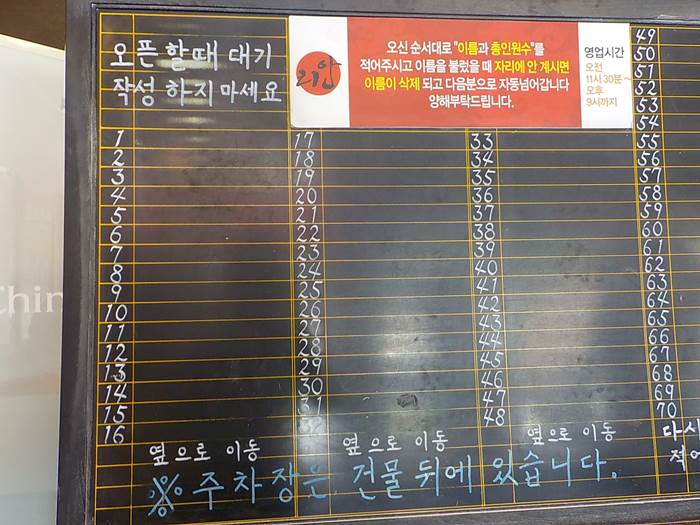 오픈 할때 대기
작성 하지마세요
리안
오신 순서대로 "이름과 총인원수"를
적어주시고 이름을 불렀을 때 자리에 안 계시면
이름이 삭제 되고 다음분으로 자동넘어갑니다
양해부탁드립니다.
영업시간
오전
11시 30분~
오후
9시까지
1
2
3
4
5
6
7
8
9
10
11
12
13
14
15
16
옆으로 이동
17
18
19
20
21
22
23
24
25
26
27
28
29
30
31
32
옆으로 이동
33
34
35
36
37
38
39
40
41
42
43
44
45
46
47
48
옆으로 이동
49
50
51
52
53
54
55
56
57
58
59
60
61
62
63
64
65
66
67
68
69
70
다시
적어
※주차장은 건물 뒤에 있습니다.